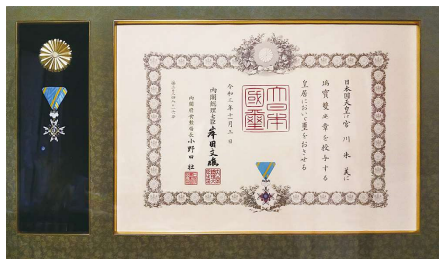 日本国天皇は宮川朱美に
瑞寶雙光章を授与する
皇居において璽をおさせる
大日本國璽
令和三年十一月三日
内閣総理大臣 岸田文雄
内閣府賞勲局長 小野田壮